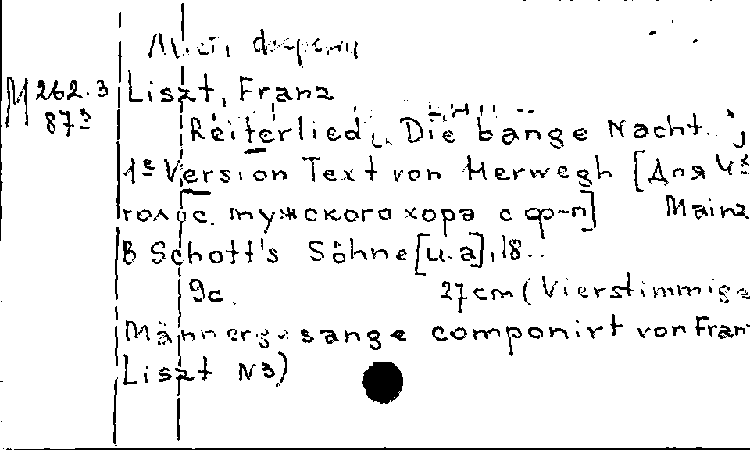 Лист, Ференц
M 262.3 Liszt, Franz
873 Reiterlied „Die bange Nacht..";
1e Version Text von Herwegh [Для 4х
голос. мужского хора с ф-п] Mainz
B Schott's Söhne [u.a], 18..
9с. 27 cm (Vierstimmige
Männergesange componirt von Fran
Liszt N3)